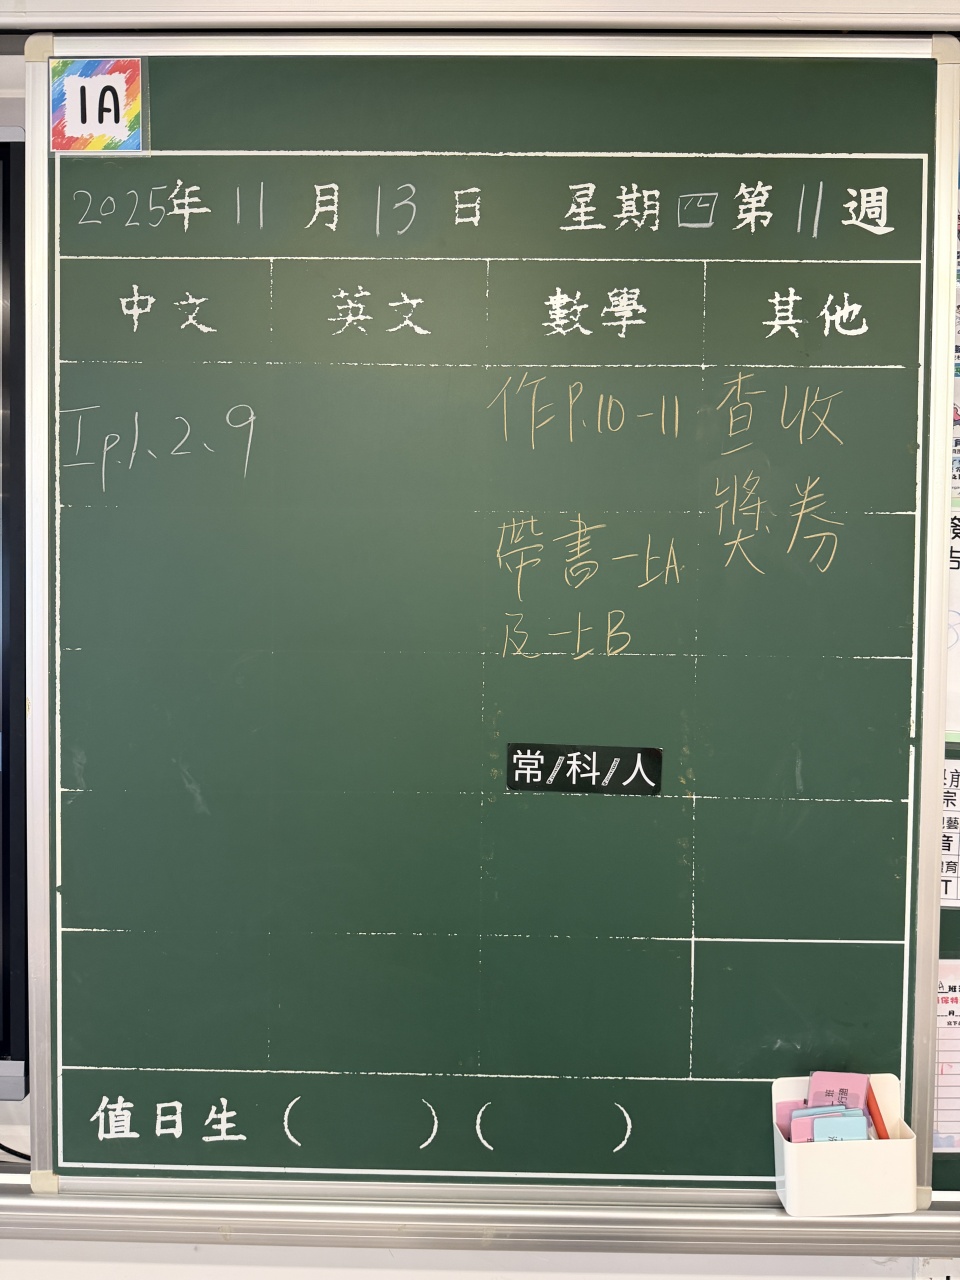 1A
2025年 11 月 13 日 星期 四 第 11 週
中文 英文 數學 其他
工p.1、2、9
作P.10-11
帶書一上A
及一上B
常/科/人
查收
獎券
值日生 ( ) ( )